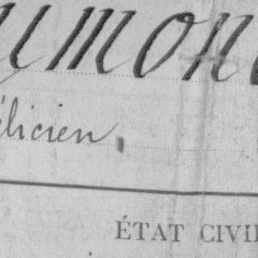 ymon
élicien,
ÉTAT CIVI